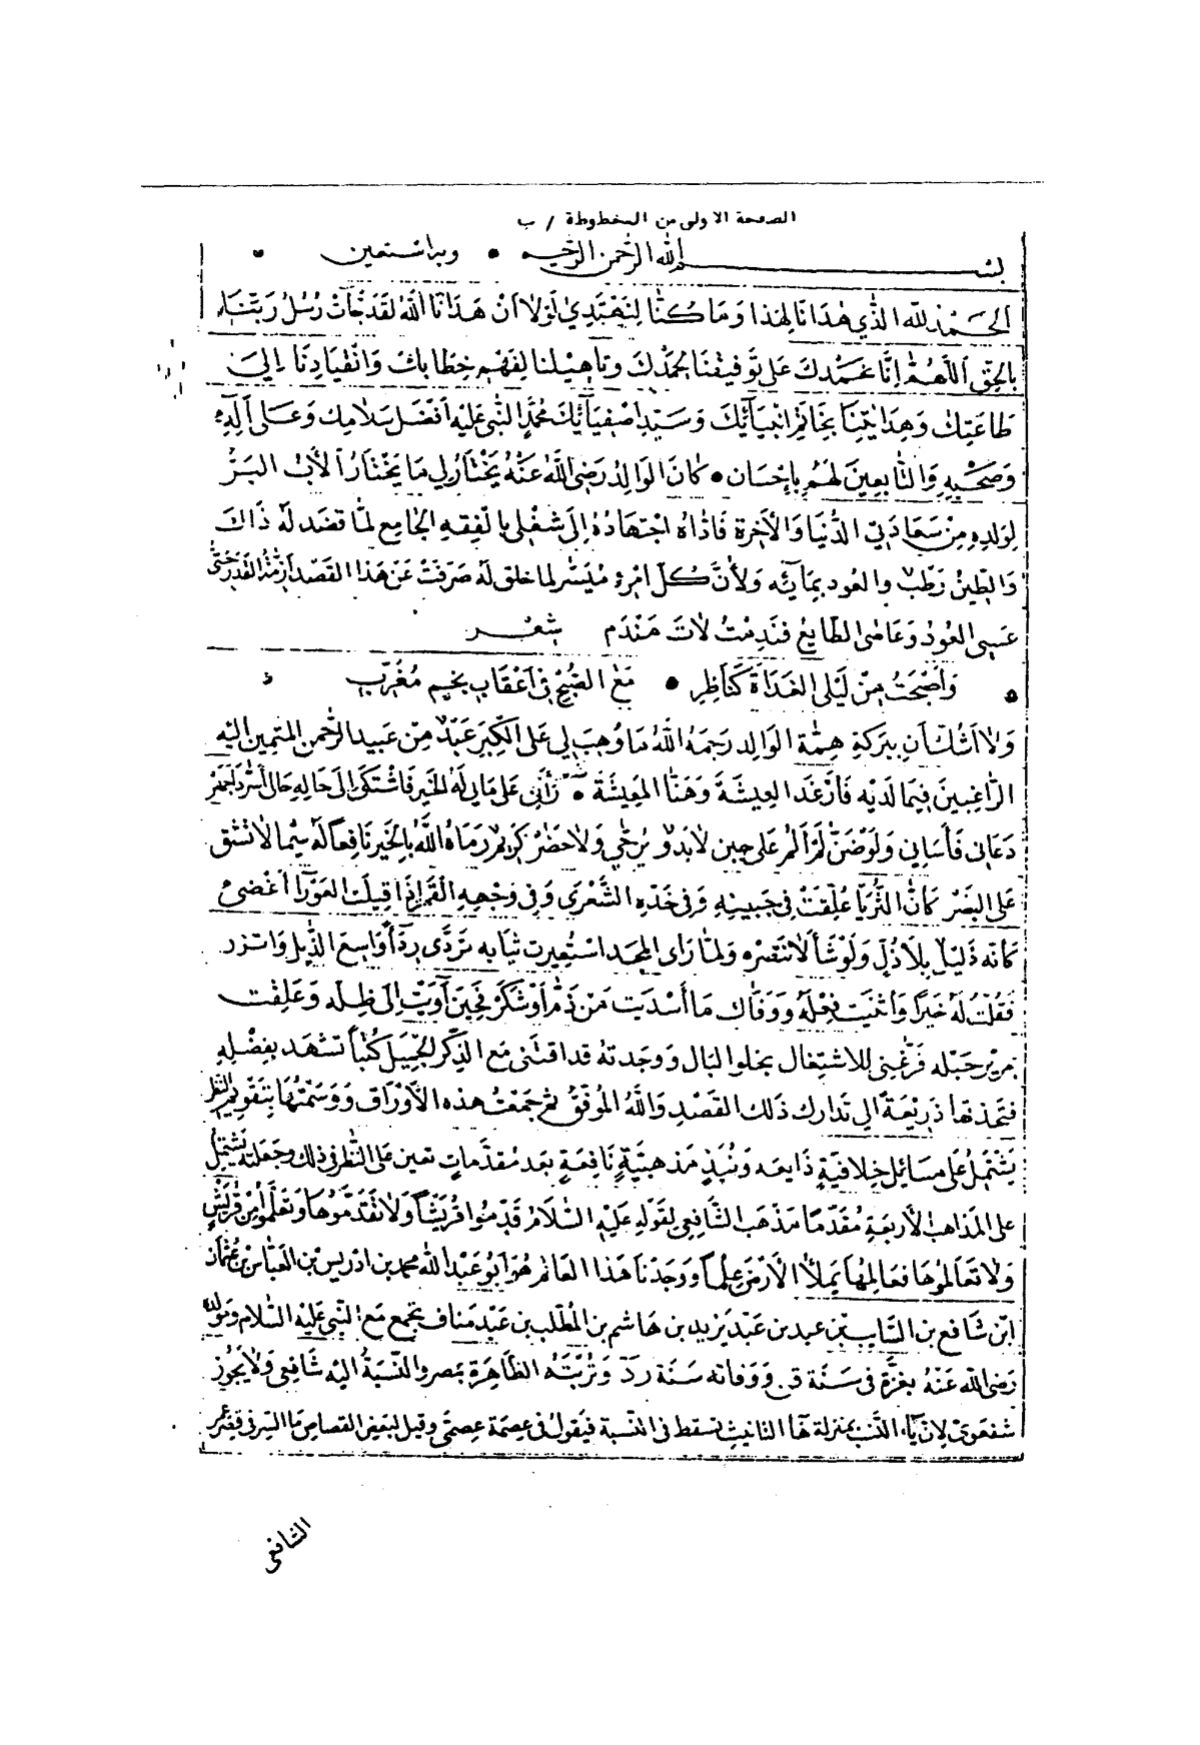 الصفحة الاولى من المخطوطة / ب
بسم الله الرحمن الرحيم • وبه استعين •
الحَمْدُ لله الذَّي هَدَانَا لهذا وَمَا كُنَّا لِنَهْتَدِيَ لَوْلَا أنْ هَدَانَا اللهُ لقَدْ جَآتْ رُسُلُ رَبّنَا
بالحَقِّ اَللّهُمَّ اِنَّا نحمَدكَ عَلى تَوفيقنَا لحمْدكَ وتأهيْلنا لفَهْم خِطَابكَ وَانْقيَادِنَا إلى
طَاعَتِكَ وَهِدَايَتِنَا بخَاتَمِ انبيَآئِكَ وَسَيِّدِ اصْفِيَآئِكَ مُحمَّدٍ النَّبي عَلَيْه اَفْضَل سَلَامِك وَعَلى آلِهِ
وَصَحْبِهِ وَالتَّابِعِينَ لَهُمْ بِاحْسَان • كَانَ الوَالِدُ رَضي اللهُ عَنْهُ يَخْتَارُ لِي مَا يَخْتَارُ الأَبُ البَرُّ
لِوَلدِهِ مِنْ سَعَادَتيِ الدُّنيَا وَالآخِرة فَادَّاهُ اجْتهَادُهُ إِلَى شَغْلي بالفِقهِ الجَامِع لمَّا قَصَد لَهُ ذَاكَ
وَالطِينُ رَطْبٌ والعُود بمَائِه وَلأنَّ كُلّ امْرئ مُيَسَّر لما خلق لَهُ صَرَفَتْ عَنْ هَذا القَصْدِ ازمَّةُ القَدَر حَتَّى
عَسَى العُودُ وَعَاصَى الطَّابِعُ فنَدِمْتُ لَاتَ مَنْدَم شِعْر
وَاَصْبَحَتُ مِنْ لَيْلى الغَدَاةَ كَنَاظِرِ • مَعَ الصُّبْحِ في أعْقَابِ نجْمٍ مُغَرِّبِ
وَلَا اَشُكُّ أن بِبَرَكةِ هِمَّةِ الوَالِد رَحِمَهُ اللهُ مَا وُهِبَ لي عَلى الكِبَر عَبْدٌ مِنْ عَبِيد الرَّحْمن المتَيمِّنين اليْه
الرَّاغِبينَ فِيمَا لدَيْه فَأرْغَدَ العِيشَةَ وَهَنَّا المَعِيشَةَ • رَآنِي عَلى مَا بي لَهُ الخَير فَاشْتَكَى إلىَ حَالِهِ حَالى أَسَرَّ وَاجْهَرَ
دَعَانى فَأَسَانِي وَلَوْ ضَنَّ لَمْ اَلُمْ عَلى حِين لَا بَدْوٌ يُرَجَّى وَلَا حَضَرْ كَرِيمٌ رَمَاهُ اللَّهُ بِالخَيْر نَافِعاً لَهُ سِيمَا لَا تشُق
عَلى البَصَرْ كَأنَّ الثُّرَيَّا عُلّقَتْ في جَبِينِهِ وَفى خَدّه الشَّعْرَى وَفِي وَجْهِهِ القَمَر إذَا قِيلَت العَوْرَا اَغْضَى
كَأنَّهُ ذَلِيلٌ بِلَا ذُلّ وَلَوْ شَأ لَانتصَر وَلمَّا رَاى المجَد اسْتُعِيرت ثيَابه تَرَدَّى رِدَأً وَاسِعَ الذّيل وَاتزر
فَقُلْتُ لَهُ خَيْراً وَأثنَيْت فِعْلَهُ وَوَفَّاكَ مَا أَسْدَيت مَنْ ذَمَّ أوْ شَكَرْ فحِينَ آوَيْتُ اِلى ظِلّه وَعَلِقْتُ
بمَرِير حَبْله فَرّغَنِي للاشتِغَال بخلو البَال وَوَجَدتهُ قَد اقتَنى مَعَ الذِّكْر الجَمِيل كُتُباً تشهَد بفضْلِهِ
فتَّخذتها ذَرِيْعَةً الى تَدَارك ذَلك القَصْدِ وَاللهُ المُوَفّق ثم جَمَعْتُ هَذه الأَوْرَاق وَوَسَمْتُهَا بتَقْويمِ النَّظر
يَشْتَمِلُ عَلَى مسَائل خِلافيّةٍ ذَايعَه وَنُبَذٍ مَذهبيّةٍ نَافِعَةٍ بَعد مُقدّمَاتٍ تعين عَلى النَّظر في ذلك وجَعَلته يَشْتَمِلُ
على المَذاهب الأربعَةِ مُقَدّمًا مَذْهَب الشَّافِعي لِقَولِه عَلَيْه السَّلَامُ قَدّمُوا قُرَيْشًا وَلَا تَقَدَّمُوهَا وَتعَلَّمُوا مِنْ قُرَيش
وَلا تعَالمُوهَا فعَالِمُهَا يَملأُ الأَرْضَ عِلْماً وَوَجَدْنَا هَذا العَالم هُوَ أبُو عَبْدِ الله محمد بن ادْريس بْن العَبَّاس بْن عُثْمَان
ابْن شَافع بن السَّايب بن عبد بن عَبْد يَزِيد بن هَاشم بن المُطّلب بن عَبْد مَناف يجمع مَعَ النَّبي عَليْهِ السَّلام وَمَوْلده
رَضى الله عَنْهُ بغَزَّة فى سَنَة قن وَوَفاته سَنَة رَدَ وَتُرْبَتَهُ الظَّاهِرَة بمصر والنّسبَةُ اليْه شَافعِى وَلا يَجُوز
شَفعَوِىّ لِانّ يَآء النَّسَب بمنزلة هَآ التانيثِ تسقط في النّسبة فيَقولُ فى عِصمَة عِصمِى وَقيل لبَعض القصاص مَا السّر فى قصر عُمر
الشافعى